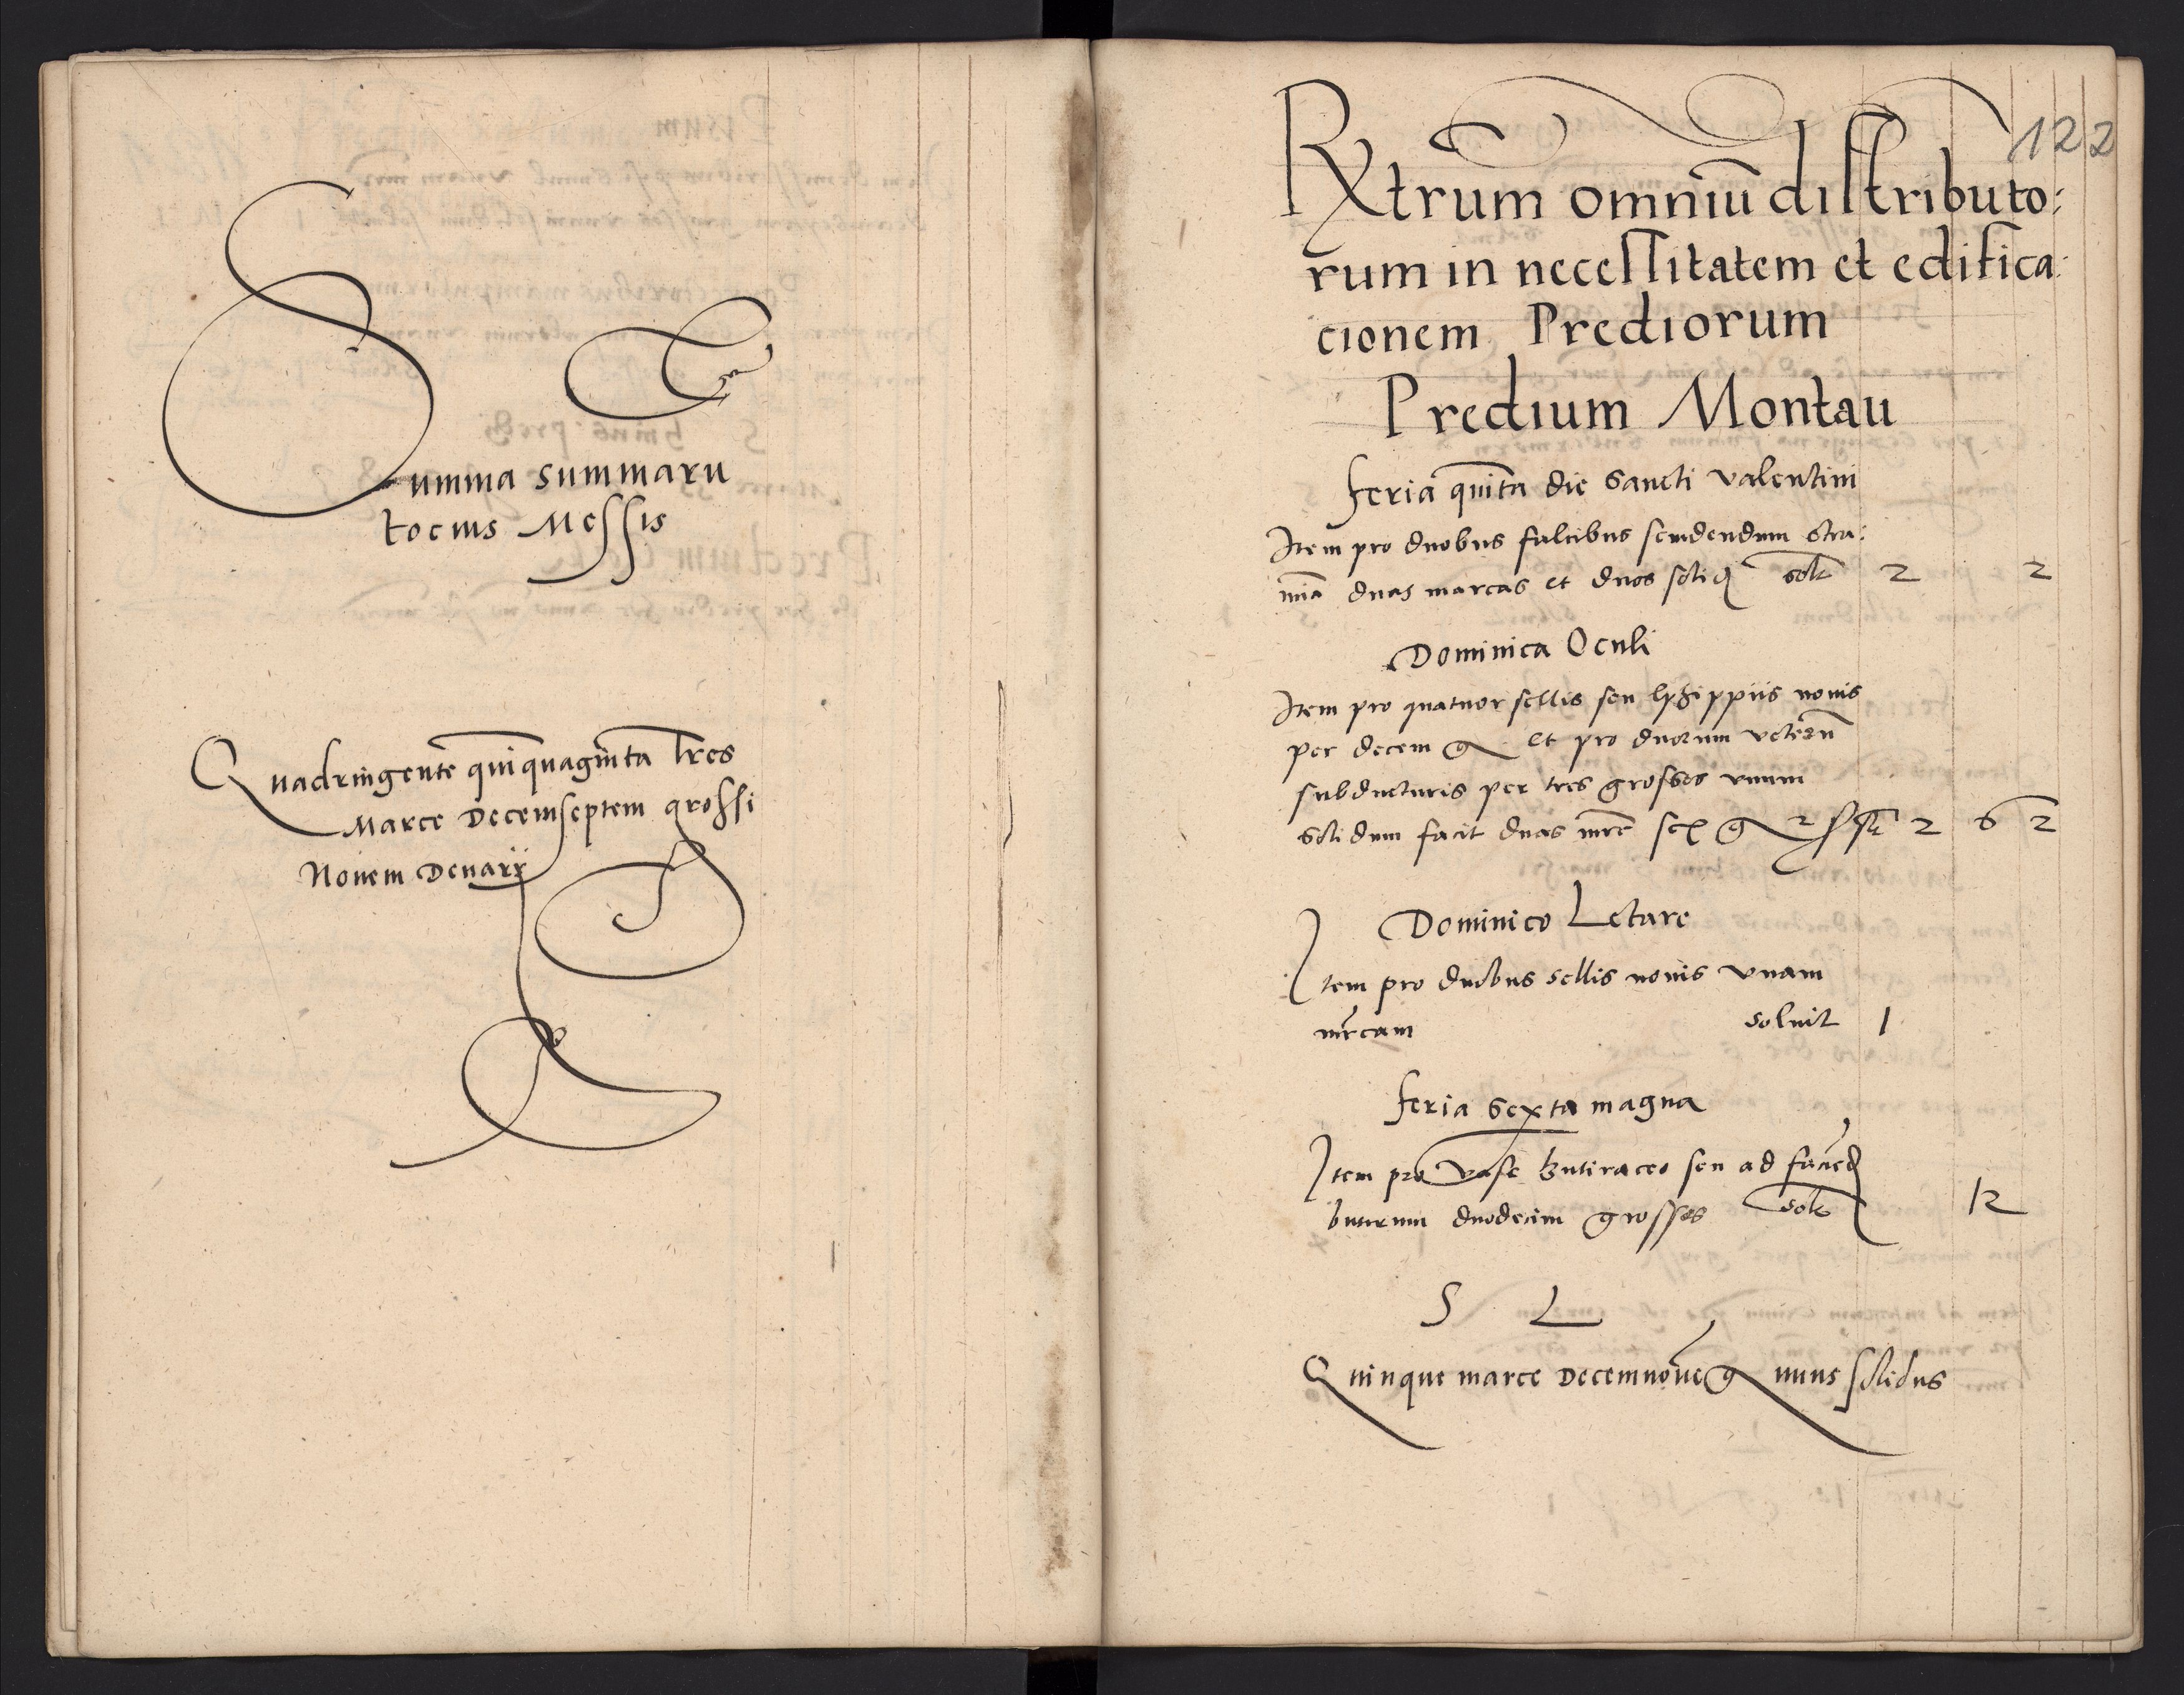 Summa summaru
tocius Messis
Quadringente quinquaginta tres
Marce Decemseptem grossi
Novem Denarii
122
Rxtrum omniu distributo:
rum in necessitatem et edifica:
cionem Prediorum
Predium Montau
feria quinta die Sancti Valentini
Item pro duobus falcibus scindendum stra:
mia duas marcas et duos solid solt 2 2
Dominica Oculi
Item pro quatuor sellis seu ephippiis novis
per decem g et pro duorum veterum
subducturis per tres grossos unum
solidum facit duas mrc sex g 2 ſ 2 6 2
Dominico Letare
Item pro duobus sellis novis unam
mrcam solvit 1
feria Sexta magna
Item pro vase butiraceo seu ad faciend
butirum duodecim grossos solt 12
S L
Quinque marce Decemnove g unus solidus